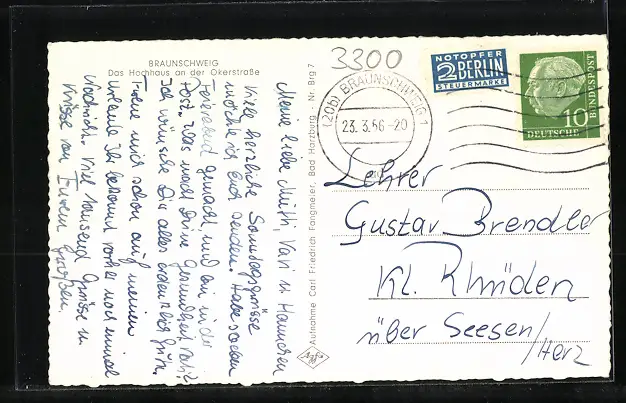 BRAUNSCHWEIG
Das Hochhaus an der Okerstraße
Meine liebe Mutti, Vati u. Hannchen
Viele herzliche Sonntagsgrüsse
möchte ich Euch senden. Habe soeben
Feierabend gemacht, und bin in der
Post. Was macht Deine Gesundheit, Vati?
Ich wünsche Dir alles erdenklich Gute.
Freue mich schon auf meinen
Urlaub. Ihr bekommt vorher noch einmal
Nachricht. Viel tausend Grüsse u.
Küsse von Eurem
Aufnahme Carl Friedrich Fangmeier, Bad Harzburg · Nr. Brg 7
3300
(20b) BRAUNSCHWEIG 1
23.3.56-20
NOTOPFER
2 BERLIN
STEUERMARKE
10
DEUTSCHE
BUNDESPOST
Lehrer
Gustav Brendler
Kl. Rhüden
über Seesen/Harz